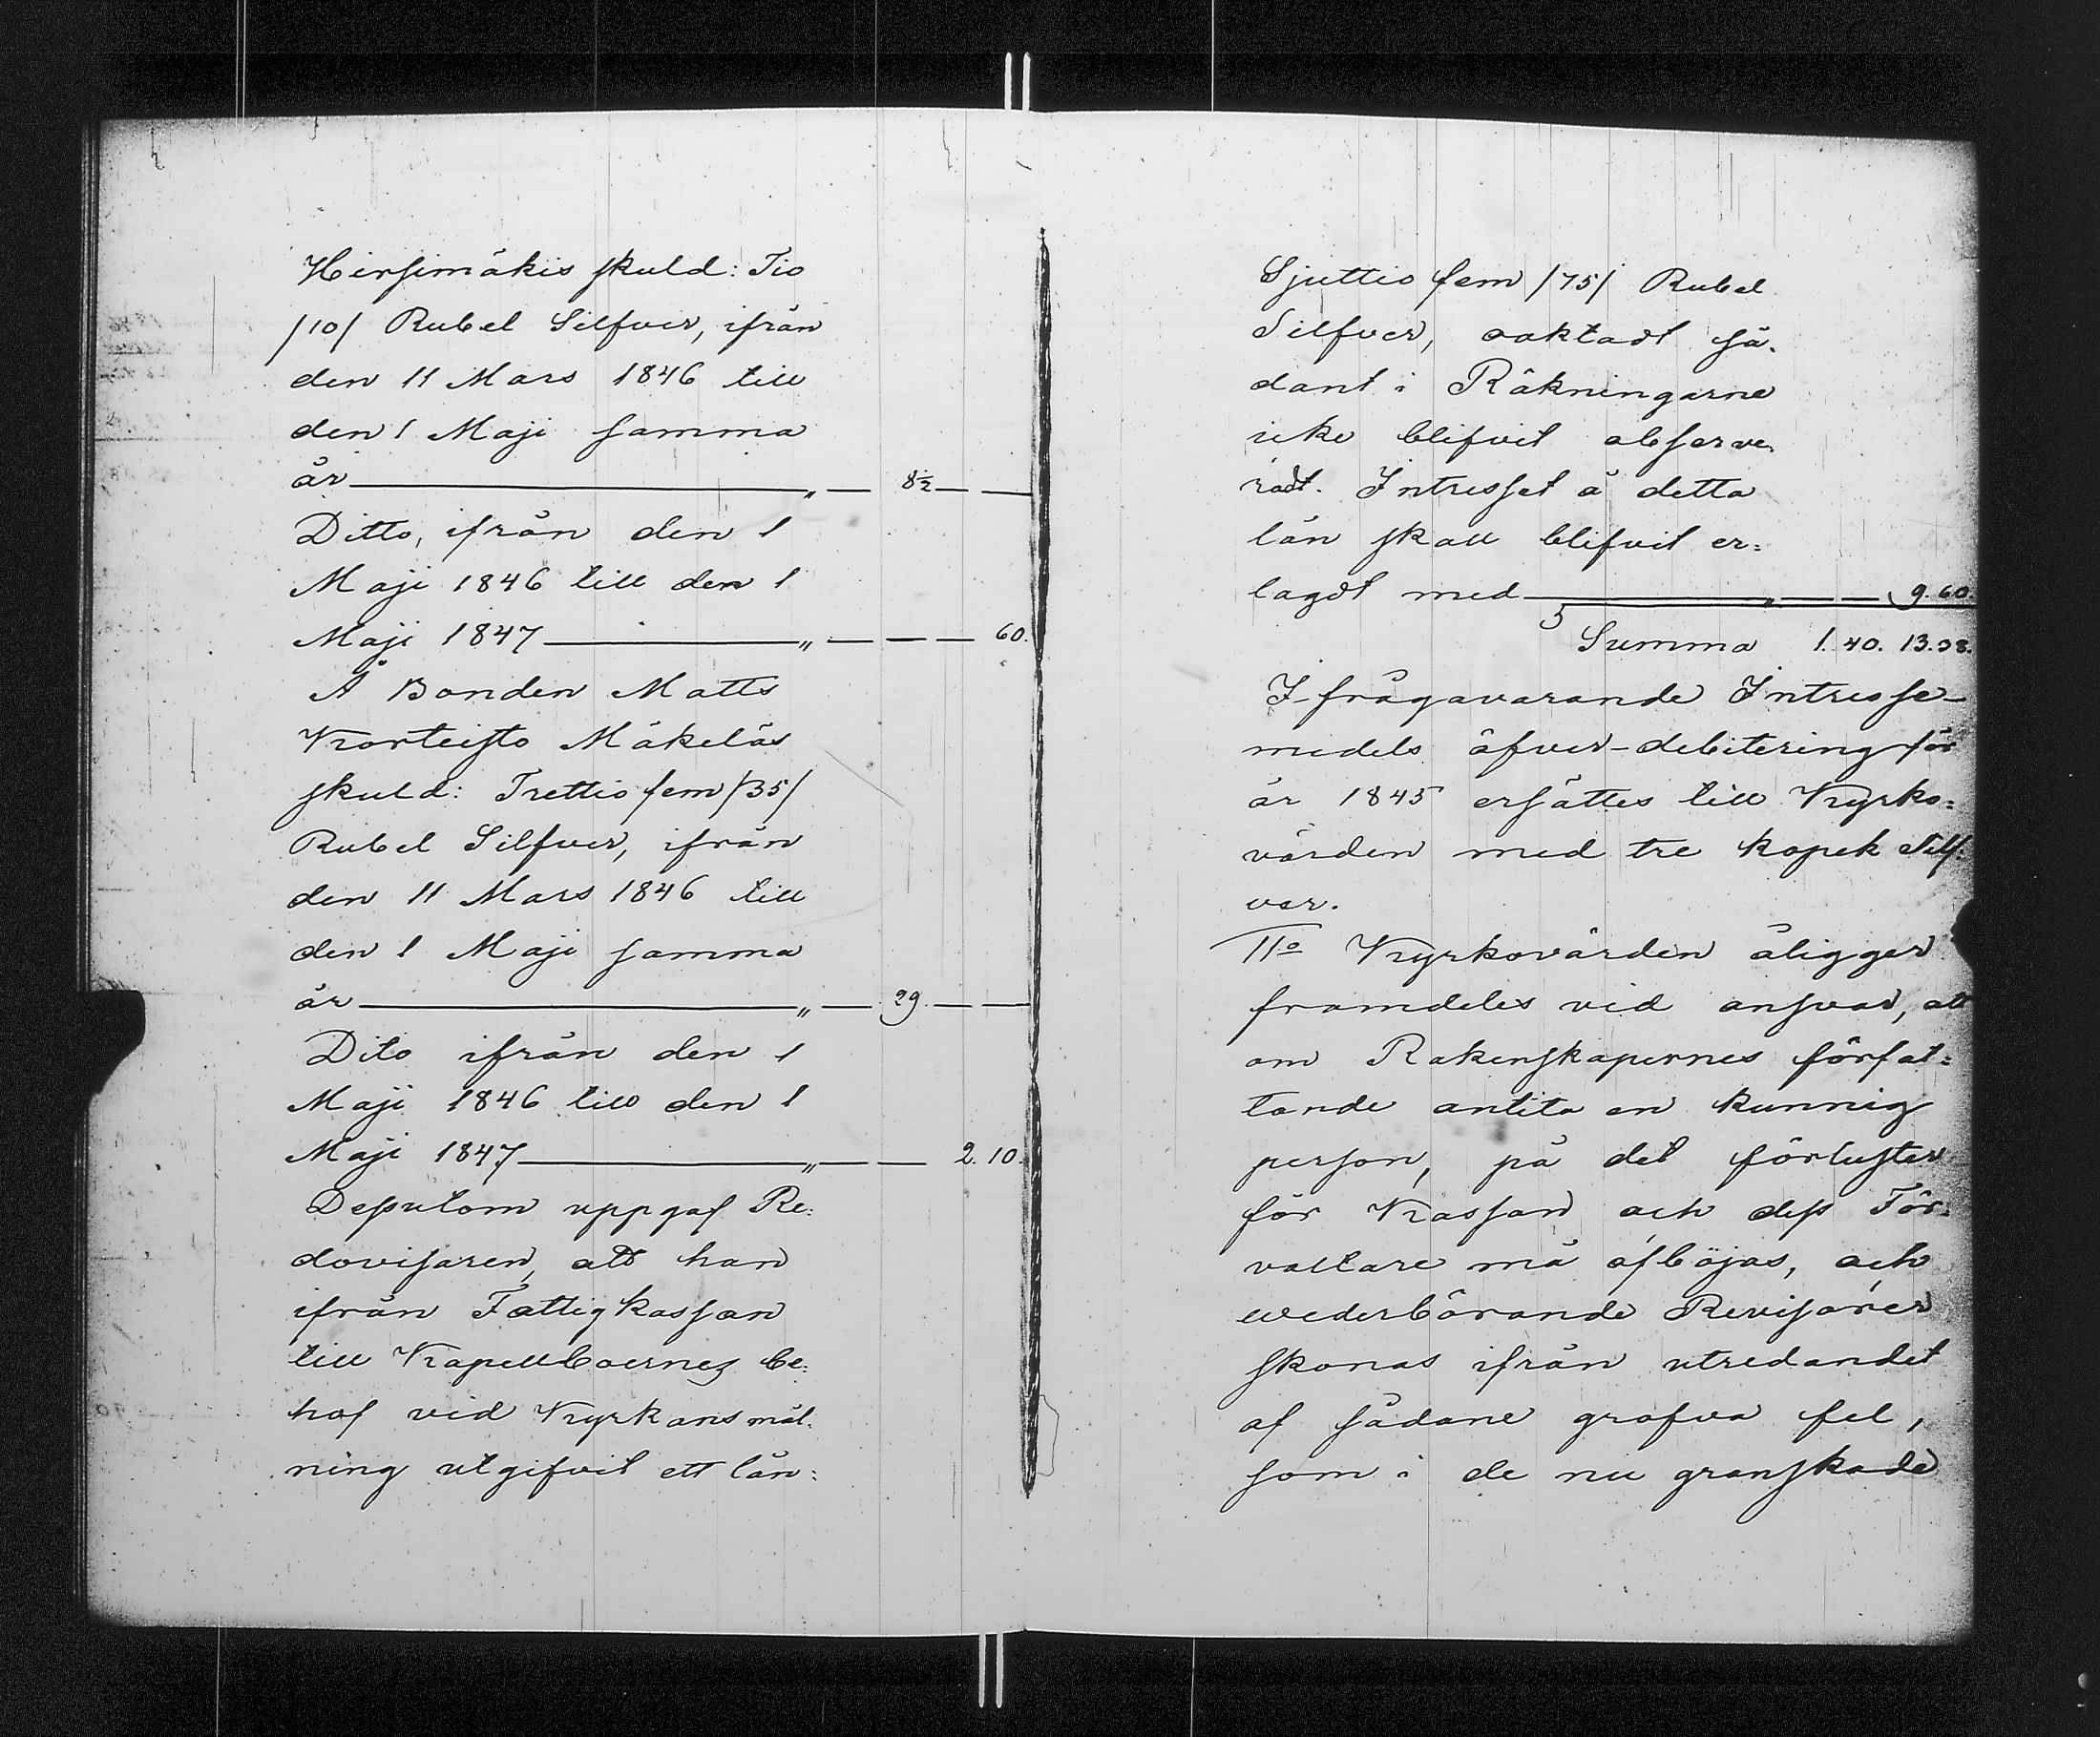 Hirsimäkis skuld: Tio
/10/ Rubel Silfver, ifrån
den 11 Mars 1846 till
den 1 Maji samma
år — „ — 8½ — —
Ditto, ifrån den 1
Maji 1846 till den 1
Maji 1847 — „ — — — 60.
Å Bonden Matts
Korteisto Mäkeläs
skuld: Trettio fem /35/
Rubel Silfver, ifrån
den 11 Mars 1846 till
den 1 Maji samma
år — „ — 29. — —
Dito ifrån den 1
Maji 1846 till den 1
Maji 1847 — „ — — 2. 10.
Dessutom uppgaf Re:
dovisaren, att han
ifrån Fattigkassan
till Kapellboernes be:
hof vid Kyrkans mål:
ning utgifvit ett lån:
Sjuttio fem /75/ Rubel
Silfver, oaktadt så:
dant i Räkningarne
icke blifvit observe
radt. Intresset å detta
lån skall blifvit er:
lagdt med — „ — — 9. 60.
Summa 1. 40. 13. 98.
I frågavarande Intresse-
medels öfver-debitering för
år 1845 ersättes till Kyrko:
värden med tre kopek Silf:
ver.
11o Kyrkovärden åligger
framdeles vid ansvar, att
om Räkenskapernes förfat:
tande anlita en kunnig
person, på det förluster
för Kassan och dess För:
valtare må afböjas, och
wederbörande Revisorer
skonas ifrån utredandet
af sådane grofva fel,
som i de nu granskade